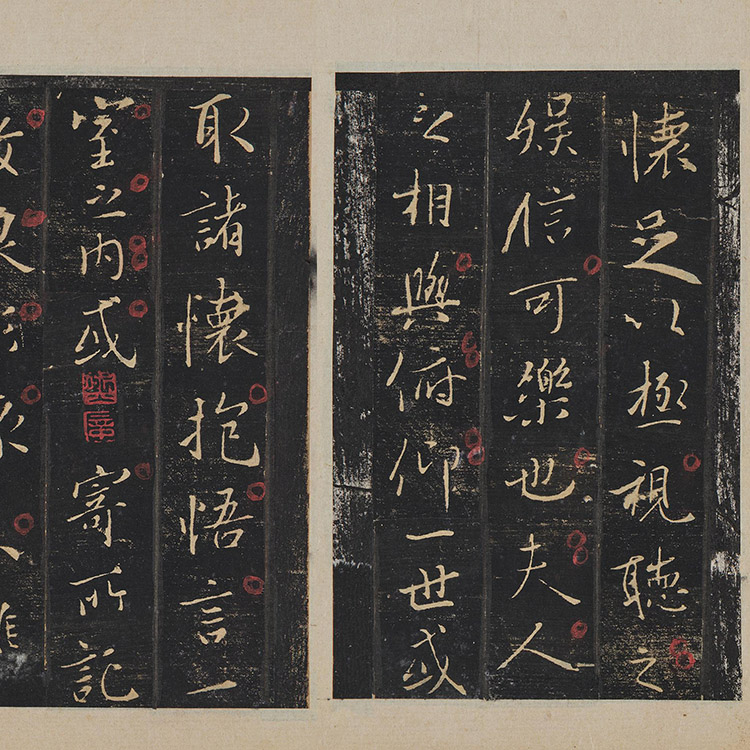 懷足以極視聽之
娛信可樂也夫人
之相與俯仰一世或
取諸懷抱悟言一
室之內或寄所託